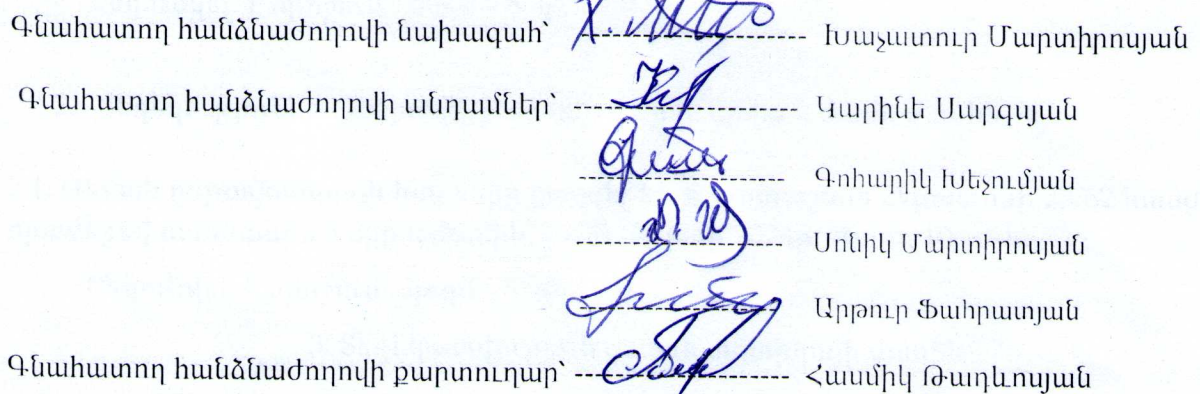 Գնահատող հանձնաժողովի նախագահ՝ ---------------------- Խաչատուր Մարտիրոսյան
Գնահատող հանձնաժողովի անդամներ՝ ---------------------- Կարինե Սարգսյան
---------------------- Գոհարիկ Խեչումյան
---------------------- Սոնիկ Մարտիրոսյան
---------------------- Արթուր Ֆահրատյան
Գնահատող հանձնաժողովի քարտուղար՝ ---------------------- Հասմիկ Թադևոսյան